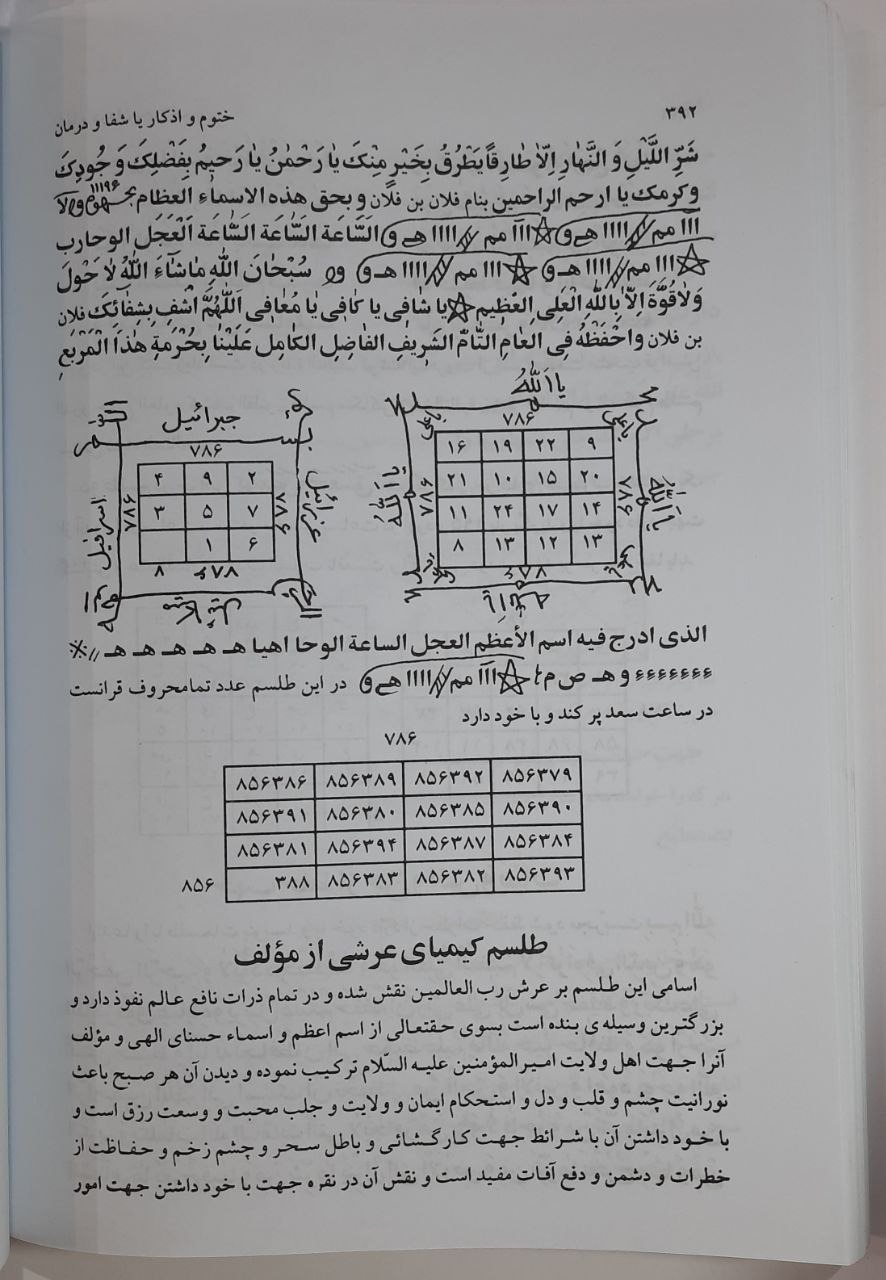 ختوم و اذکار یا شفا و درمان ۳۹۲
شَرِّ اللَّیْلِ وَ النَّهٰارِ اِلّاٰ طٰارِقاً یَطْرُقُ بِخَیْرٍ مِنْکَ یٰا رَحْمٰنُ یٰا رَحیمُ بِفَضْلِکَ وَ جُودِکَ
وکرمک یا ارحم الراحمین بنام فلان بن فلان و بحق هذه الاسماء العظام
ااا مم اااا هـ و ااا مم اااا هـ و السّٰاعَة السّٰاعَة السّٰاعَة العَجَل الوحا رب
ااا مم اااا هـ و ااا مم اااا هـ و سُبْحٰانَ اللهِ مٰاشٰاءَ اللهُ لاٰ حَوْلَ
وَلاٰ قُوَّةَ اِلّاٰ بِاللهِ الْعَلِی الْعَظیمِ یا شٰافی یا کٰافی یا مُعٰافی اَللّٰهُمَّ اشْفِ بِشِفٰائِکَ فلان
بن فلان وَاحْفَظْهُ فِی العٰامِ التّٰامِّ الشَّریفِ الفٰاضِلِ الکٰامِلِ عَلَیْنٰا بِحُرْمَةِ هٰذَا الْمَرْبَعِ
یا اَللهُ
۷۸۶
یا الله ۷۸۶
۱۶ ۱۹ ۲۲ ۹
۲۱ ۱۰ ۱۵ ۲۰
۱۱ ۲۴ ۱۷ ۱۴
۸ ۱۳ ۱۲ ۱۳
۷۸۶ یا الله
۷۸۶
جبرائیل
۷۸۶
اسرافیل ۷۸۶
۴ ۹ ۲
۳ ۵ ۷
۱ ۶
۷۸۶ عزرائیل
۸ ۷۸۶
الذی ادرج فیه اسم الأعظم العجل الساعة الوحا اهیا هـ هـ هـ هـ هـ
ءءءءءءء و هـ ص م ااا مم اااا هـ و در این طلسم عدد تمامحروف قرانست
در ساعت سعد پر کند و با خود دارد
۷۸۶
۸۵۶۳۸۶ ۸۵۶۳۸۹ ۸۵۶۳۹۲ ۸۵۶۳۷۹
۸۵۶۳۹۱ ۸۵۶۳۸۰ ۸۵۶۳۸۵ ۸۵۶۳۹۰
۸۵۶۳۸۱ ۸۵۶۳۹۴ ۸۵۶۳۸۷ ۸۵۶۳۸۴
۸۵۶ ۳۸۸ ۸۵۶۳۸۳ ۸۵۶۳۸۲ ۸۵۶۳۹۳
طلسم کیمیای عرشی از مؤلف
اسامی این طلسم بر عرش رب العالمین نقش شده و در تمام ذرات نافع عالم نفوذ دارد و
بزرگترین وسیله‌ی بنده است بسوی حقتعالی از اسم اعظم و اسماء حسنای الهی و مؤلف
آنرا جهت اهل ولایت امیرالمؤمنین علیه السّلام ترکیب نموده و دیدن آن هر صبح باعث
نورانیت چشم و قلب و دل و استحکام ایمان و ولایت و جلب محبت و وسعت رزق است و
با خود داشتن آن با شرائط جهت کارگشائی و باطل سحر و چشم زخم و حفاظت از
خطرات و دشمن و دفع آفات مفید است و نقش آن در نقره جهت با خود داشتن جهت امور